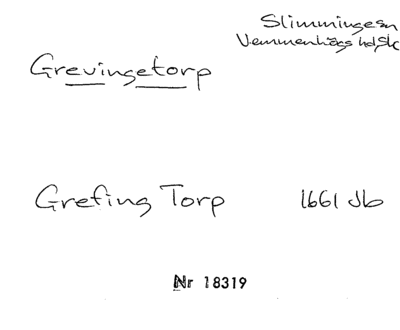 Slimminge sn
Vemmenhögs hd, Sk
Grevingetorp
Grefing Torp 1661 Jb
Nr 18319